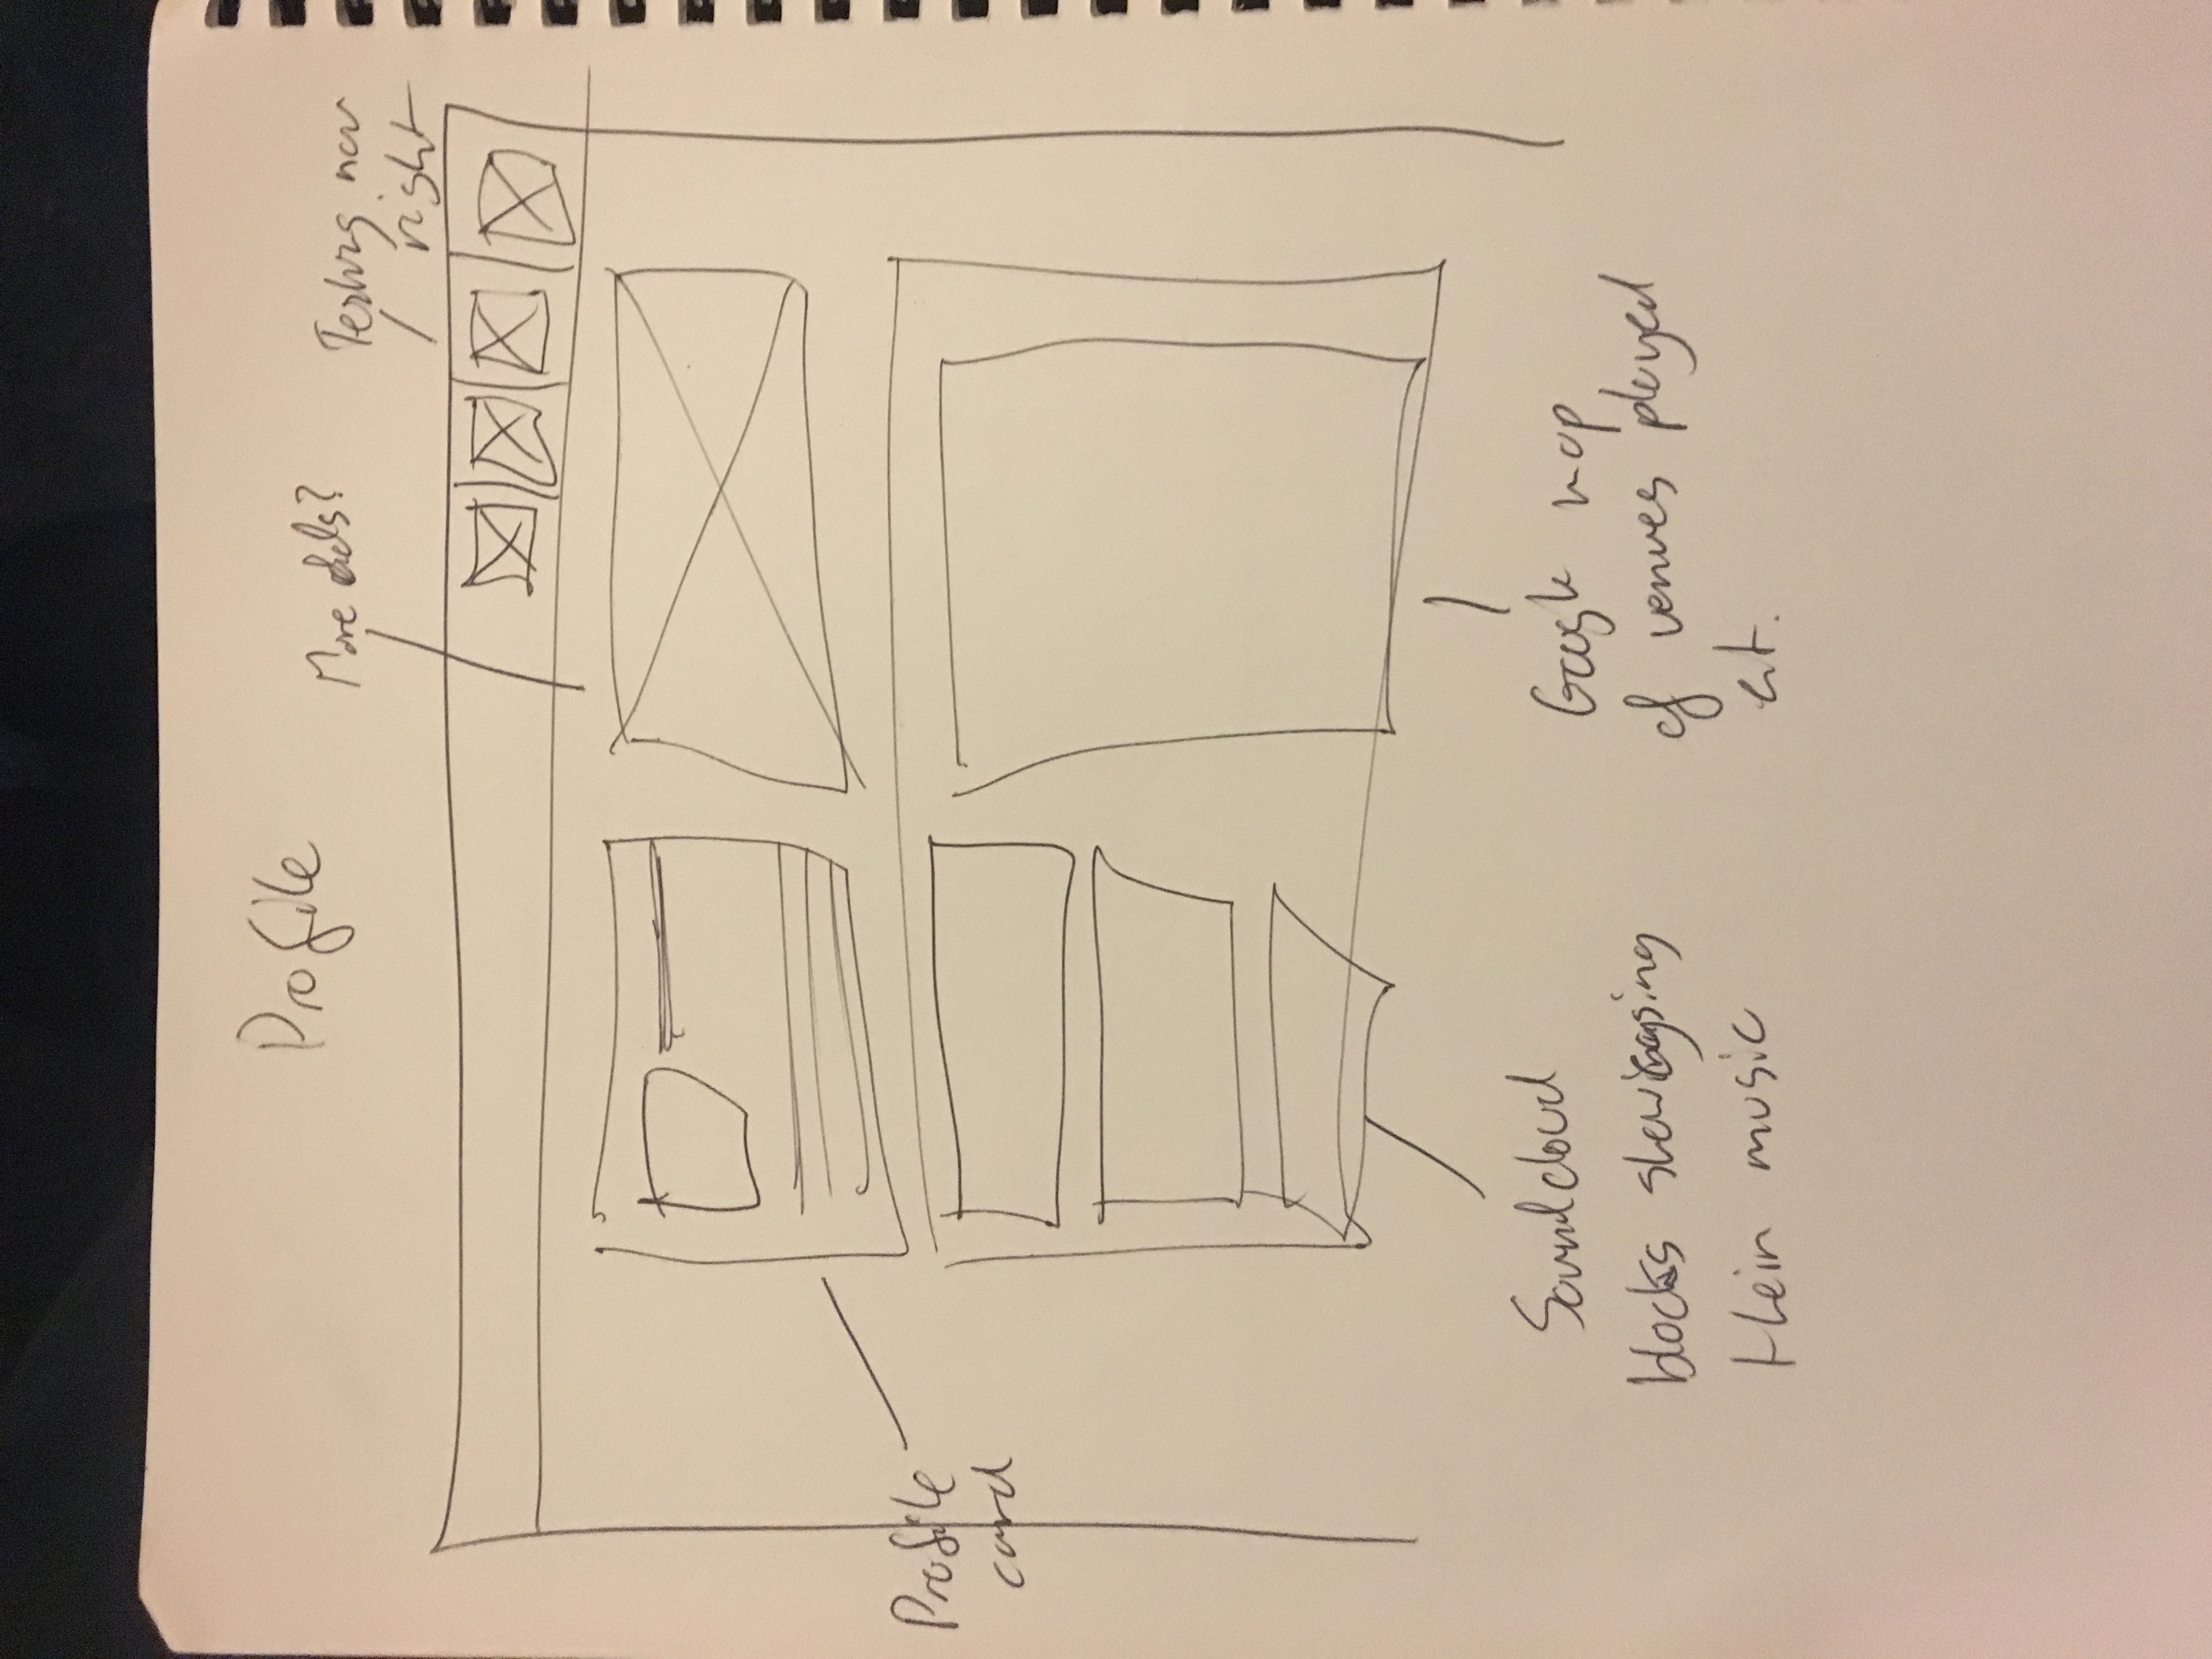 Profile
More
Testing nav
right
Profile
card
Soundcloud
blocks
their music
Google map
of venues played
at.